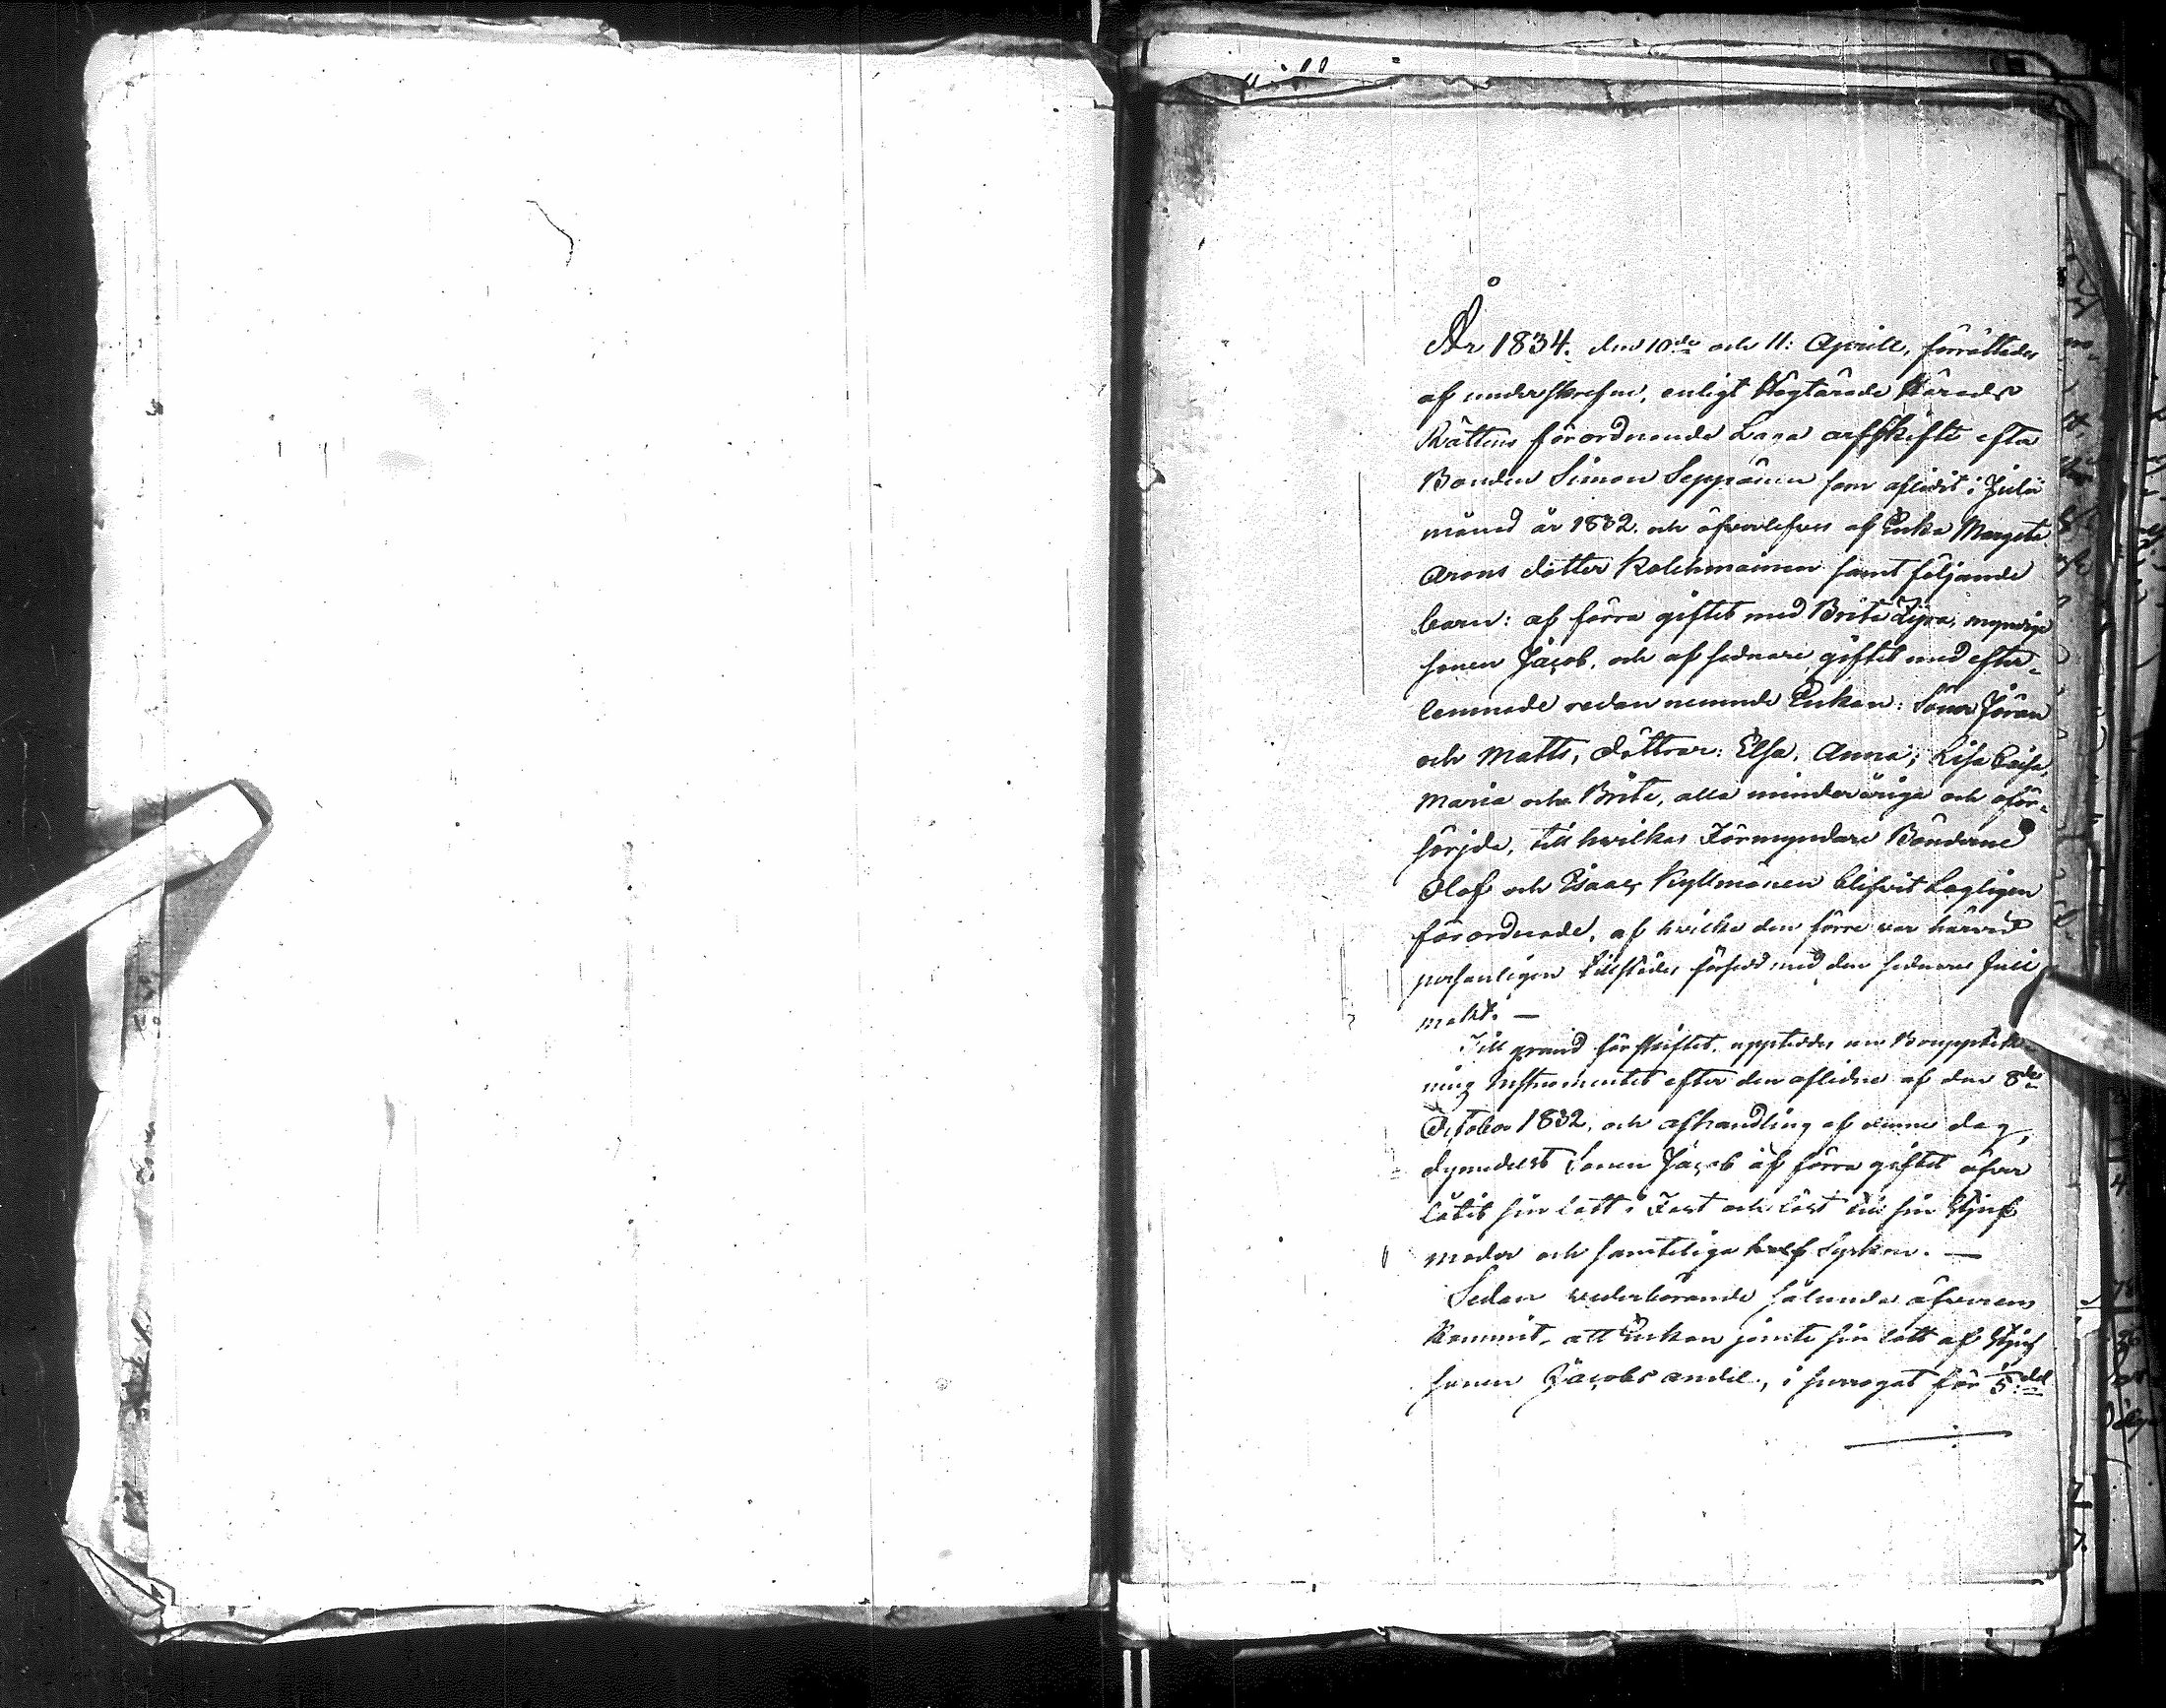 År 1834. den 10de och 11: Aprill, förrättades
af underskrefne, enligt Högtärade Härads
Rättens förordnande Laga arfskifte efter
Bonden Simon Seppänen som aflidit i Julii
månad år 1832. och öfverlefves af Enka Margeta
Arons dotter Kolehmainen samt följande
barn: af förra giftet med Brita Lejna, myndige
sonen Jacob, och af sednare giftet med efter-
lemnade redan nemnde Enkan: Söner Jöran
och Matts, döttrar: Elsa, Anna, Lisa Caisa,
Maria och Brita, alla minderåriga och oför-
sörjda, till hvilkas Förmyndare Bönderne
Olof och Isaac Kyllmänen blifvit Lagligen
förordnade, af hvilka den förre var härvid
personligen tillstädes försedd med den sednares full
makt. —
Till grund för skiftet, uppteddes en Boupptek-
ning Instrumentet efter den aflidne af den 8de
October 1832, och afhandling af denne dag,
dymedelst Sonen Jacob af förra giftet öfver
låtit sin lott i Fast och löst till sin Styf
moder och samteliga half Syskon. —
Sedan vederbörande sålunda öfverens
kommit, att Enkan jemte sin lott af Styf
sonen Jacobs andel, i surrogat för 1/5:del